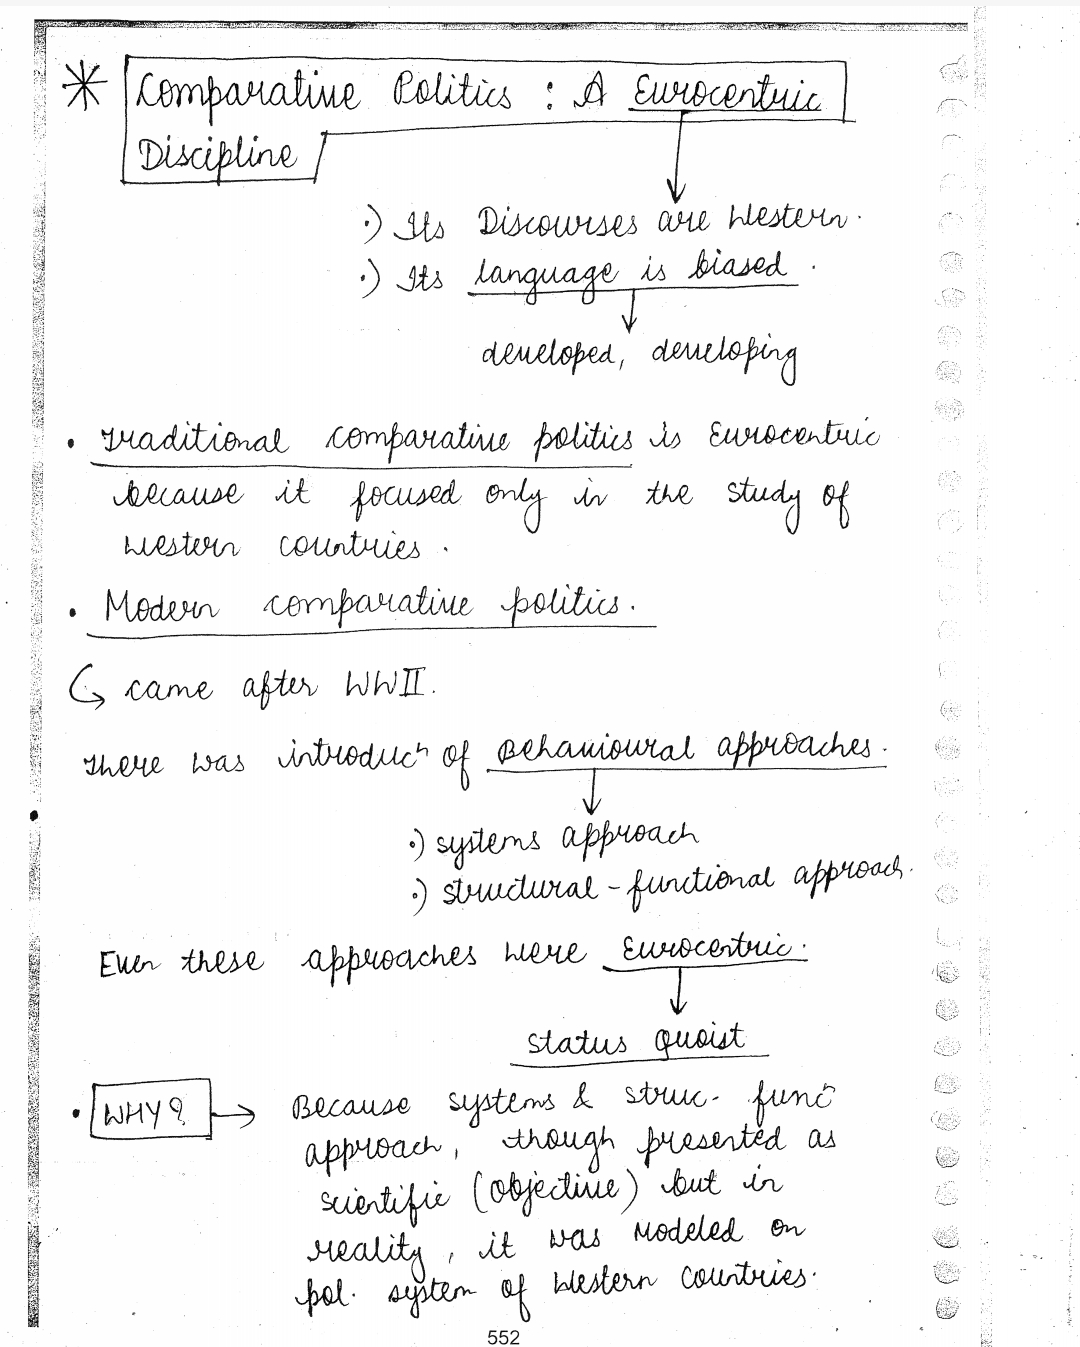 * Comparative Politics : A Eurocentric
Discipline
.) Its Discourses are Western.
.) Its language is biased.
developed, developing
• Traditional comparative politics is Eurocentric
because it focused only in the study of
Western countries.
• Modern comparative politics.
↳ came after WWII.
There was introducn of Behavioural approaches.
.) systems approach
.) structural-functional approach.
Even these approaches were Eurocentric.
status quoist
• WHY? → Because systems & struc- funcn
approach, though presented as
scientific (objective) but in
reality, it was modeled on
pol. system of Western countries.
552